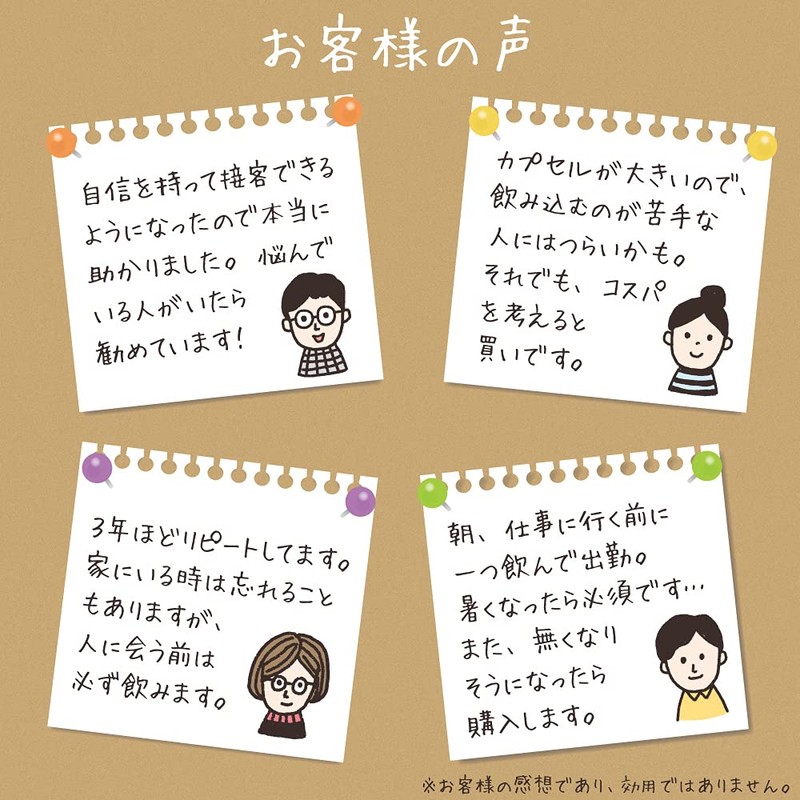 お客様の声
自信を持って接客できる
ようになったので本当に
助かりました。悩んで
いる人がいたら
勧めています!
カプセルが大きいので、
飲み込むのが苦手な
人にはつらいかも。
それでも、コスパ
を考えると
買いです。
3年ほどリピートしてます。
家にいる時は忘れること
もありますが、
人に会う前は
必ず飲みます。
朝、仕事に行く前に
一つ飲んで出勤。
暑くなったら必須です…
また、無くなり
そうになったら
購入します。
※お客様の感想であり、効用ではありません。